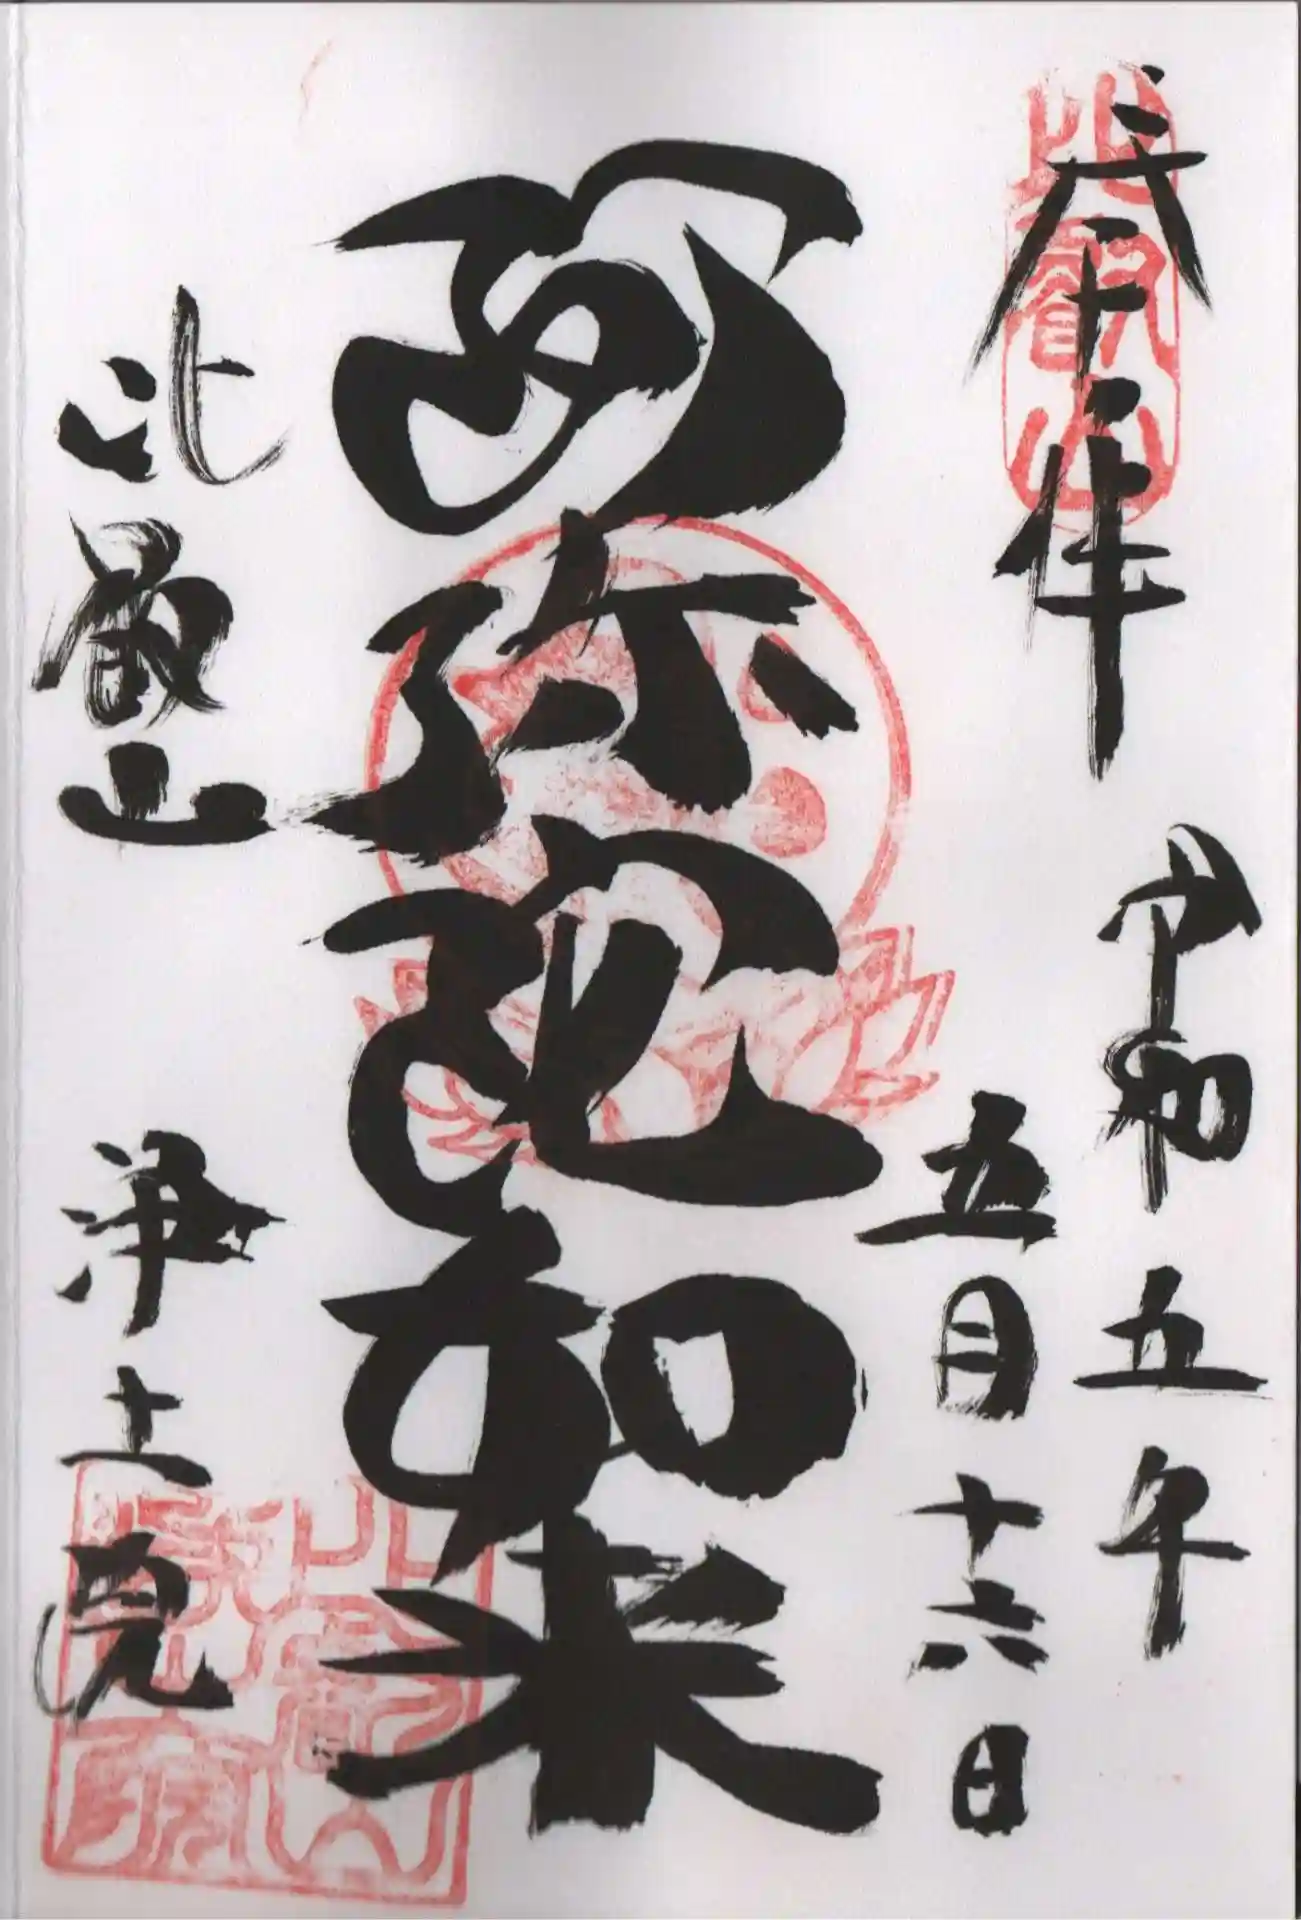 奉拝
令和五年
五月十六日
阿弥陀如来
比叡山
浄土院
比叡山